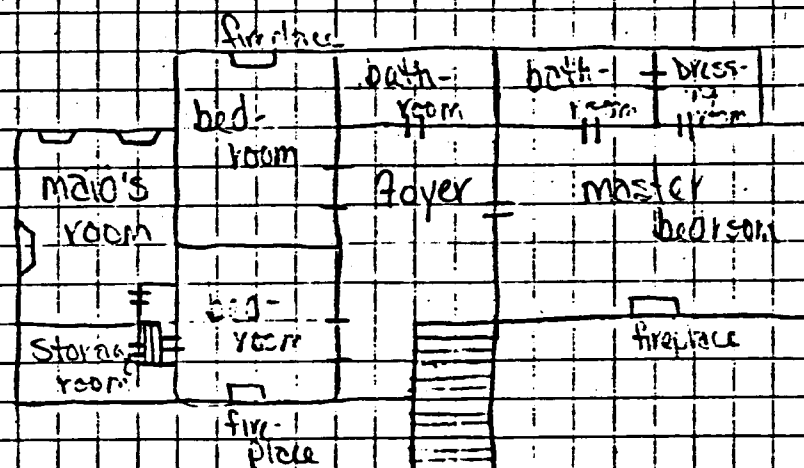 fireplace
bath-
room
bath-
room
Dress-
room
bed-
room
maid's
room
foyer
master
bedroom
bed-
room
storage
room
fireplace
fire-
place